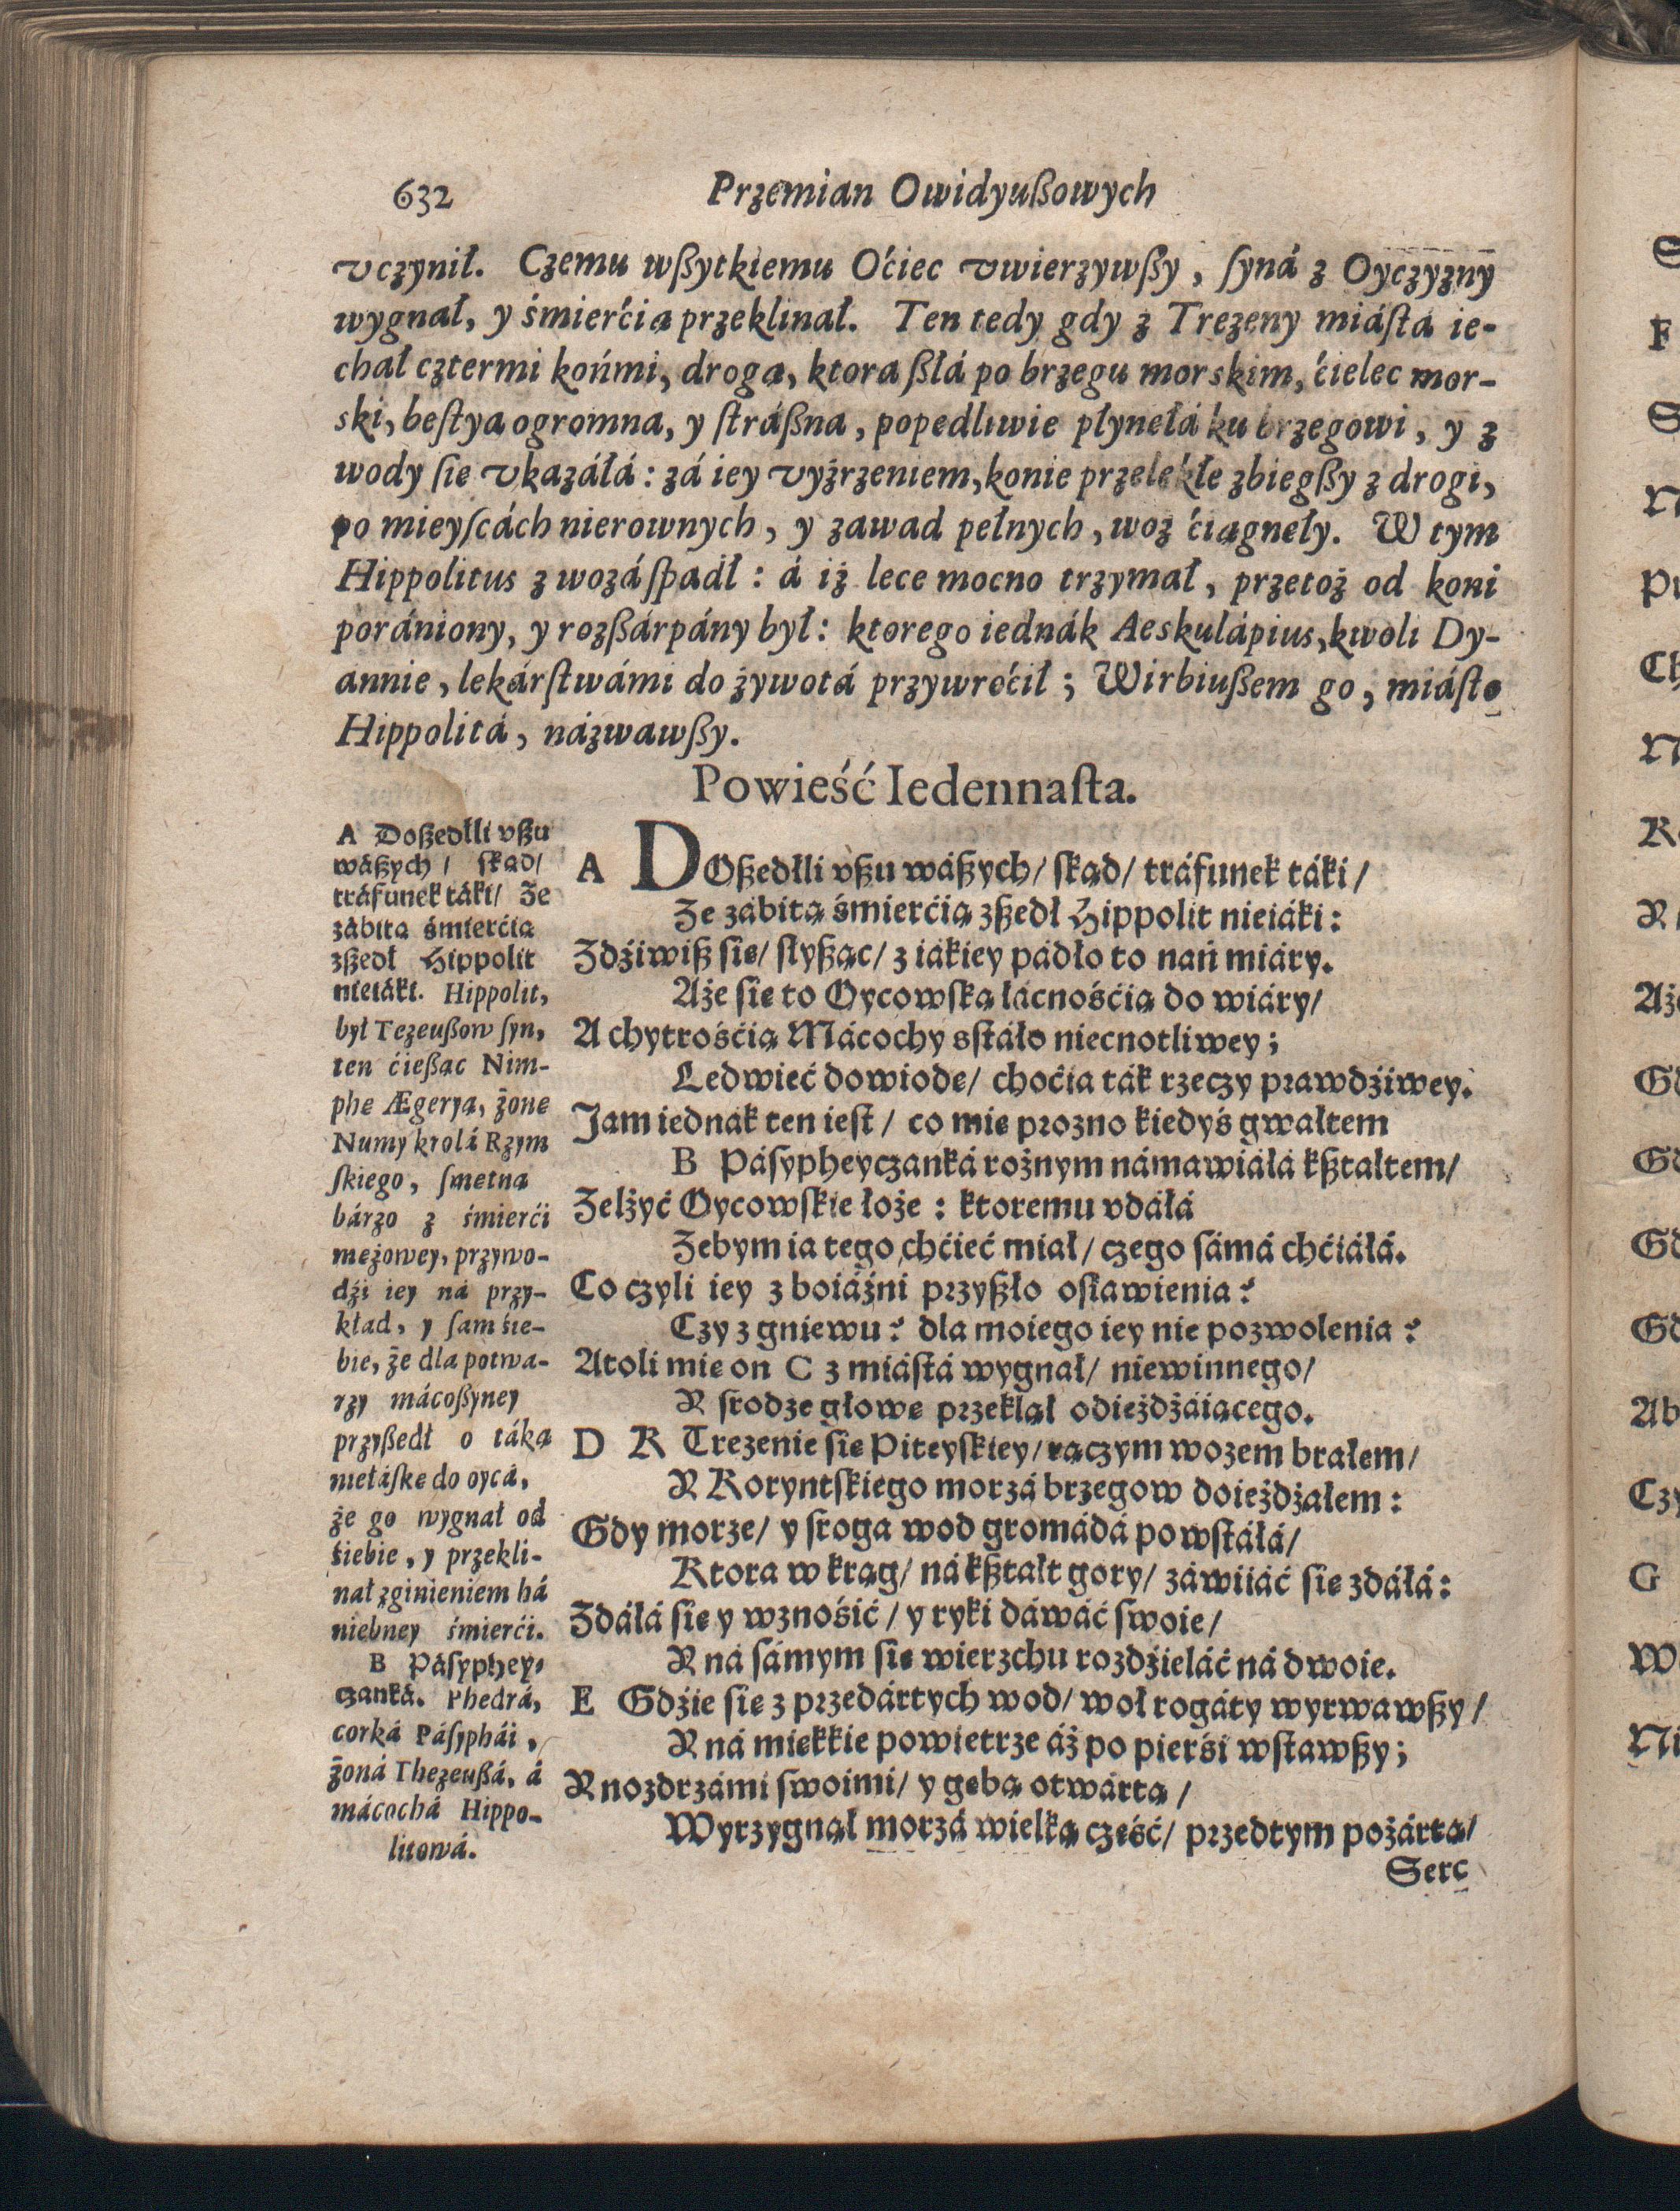 632 Przemian Owidyußowych
vczynił. Czemu wßytkiemu Oćiec vwierzywßy, ſyná z Oyczyzny
wygnał, y śmierćią przeklinał. Ten tedy gdy z Trezeny miáſtá ie-
chał cztermi końmi, drogą, ktora ßłá po brzegu morskim, ćielec mor-
ski, beſtya ogromna, y ſtráßna, popędliwie płynęłá ku brzegowi, y z
wody ſię vkazáłá: zá iey vyżrzeniem, konie przelękłe zbiegßy z drogi,
po mieyſcách nierownych, y zawad pełnych, woz ćiągnęły. W tym
Hippolitus z wozá ſpadł: á iż lece mocno trzymał, przetoż od koni
poŕániony, y rozßárpány był: ktorego iednák Aeskulápius, kwoli Dy-
annie, lekárſtwámi do żywotá przywroćił; Wirbiußem go, miáſto
Hippolitá, názwawßy.
Powieść Iedennaſta.
A Doßedłli vßu
wáßych/ ſkąd/
tráfunek táki/ Ze
zábitą śmierćią
zßedł Hippolit
nieiáki. Hippolit,
był Tezeußow ſyn,
ten ćießąc Nim-
phę Ægeryą, żonę
Numy krolá Rzym
ſkiego, ſmętną
bárzo z śmierći
mężowey, przywo-
dźi iey ná przy-
kład, y ſam śie-
bie, że dla potwa-
rzy mácoßyney
przyßedł o táką
niełáſkę do oycá,
że go wygnał od
śiebie, y przekli-
nał zginieniem há
niebney śmierći.
B Páſyphey-
czanká. Phedrá,
corká Páſyphái,
żoná Thezeußá, á
mácochá Hippo-
litowá.
A DOßedłli vßu wáßych/ ſkąd/ tráfunek táki/
Ze zábitą śmierćią zßedł Hippolit nieiáki:
Zdźiwiß ſię/ ſłyßąc/ z iákiey pádło to nań miáry.
Aże ſię to Oycowſką łácnośćią do wiáry/
A chytrośćią Mácochy sſtáło niecnotliwey;
Ledwieć dowiodę/ choćia ták rzeczy prawdźiwey.
Jam iednák ten ieſt/ co mię prozno kiedyś gwałtem
B Páſypheyczanká rożnym námawiáłá kßtałtem/
Zelżyć Oycowſkie łoże: ktoremu vdáłá
Zebym ia tego chćieć miał/ czego ſámá chćiáłá.
Co czyli iey z boiáźni przyßło oſławienia?
Czy z gniewu? dla moiego iey nie pozwolenia?
Atoli mię on C z miáſtá wygnał/ niewinnego/
Y ſrodze głowę przeklął odieżdżáiącego.
D K Trezenie ſię Piteyſkiey/ rączym wozem brałem/
Y Koryntſkiego morzá brzegow doieżdżałem:
Gdy morze/ y ſroga wod gromádá powſtáłá/
Ktora w krąg/ ná kßtałt gory/ záwiiáć ſię zdáłá:
Zdáłá ſię y wznośić/ y ryki dáwáć ſwoie/
Y ná ſámym ſię wierzchu rozdźieláć ná dwoie.
E Gdźie ſię z przedártych wod/ woł rogáty wyrwawßy/
Y ná miękkie powietrze áż po pierśi wſtawßy;
Y nozdrzámi ſwoimi/ y gębą otwártą/
Wyrzygnął morzá wielką cżęść/ przedtym pożártą/
Serc